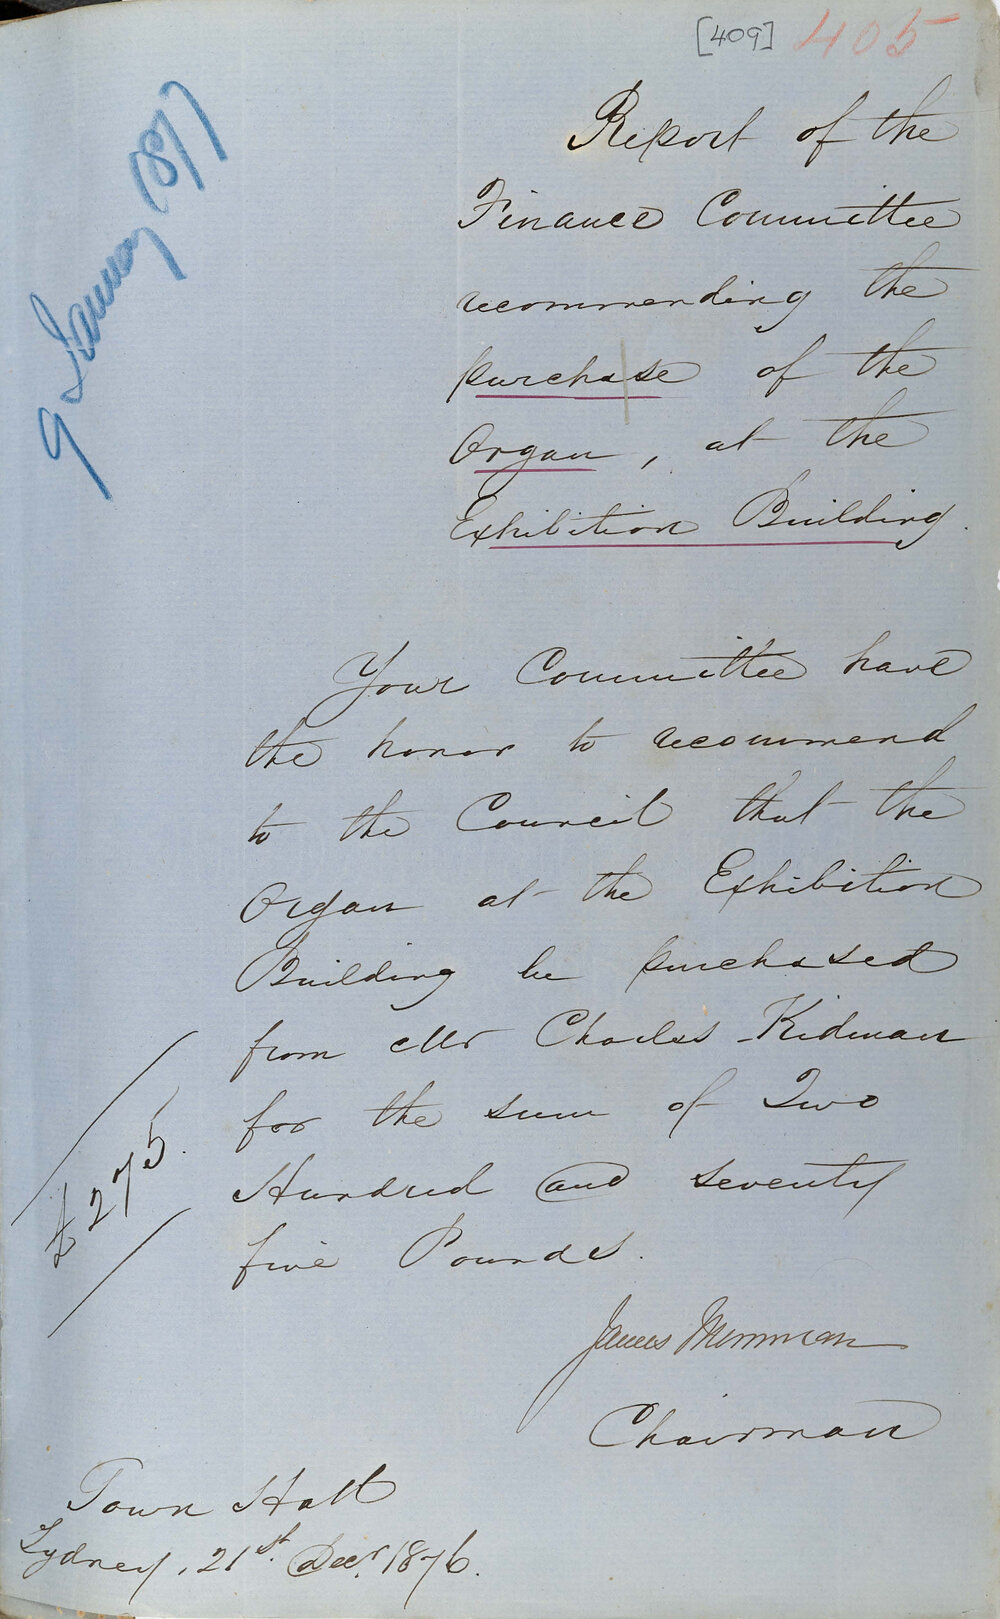 [409] 405
9 January 1877
Report of the
Finance Committee
recommending the
purchase of the
Organ, at the
Exhibition Building.
Your Committee have
the honor to recommend
to the Council that the
Organ at the Exhibition
Building be purchased
from Mr Charles Kidman
for the sum of Two
Hundred and seventy
five Pounds.
£275.
James Merriman
Chairman
Town Hall
Sydney, 21st. Decr. 1876.